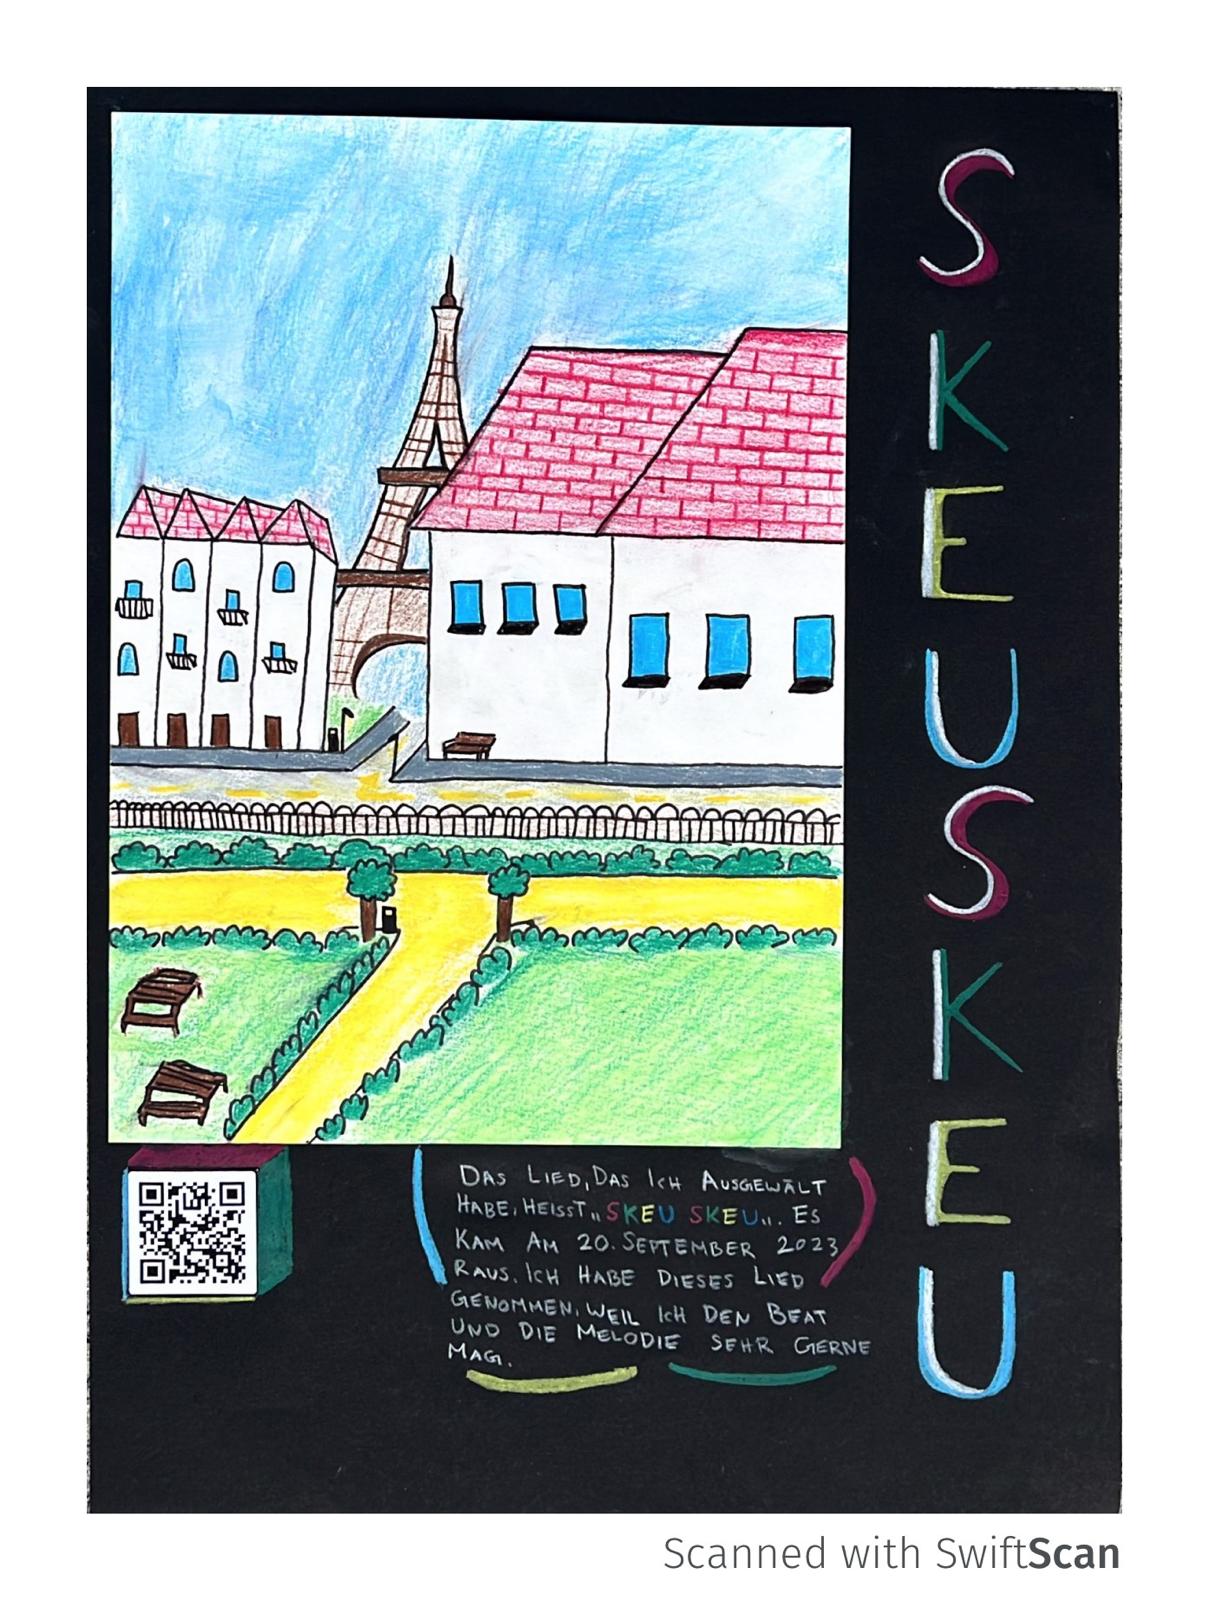 SKEUSKEU
DAS LIED, DAS ICH AUSGEWÄLT
HABE, HEISST „SKEU SKEU„. ES
KAM AM 20. SEPTEMBER 2023
RAUS. ICH HABE DIESES LIED
GENOMMEN, WEIL ICH DEN BEAT
UND DIE MELODIE SEHR GERNE
MAG.
Scanned with SwiftScan